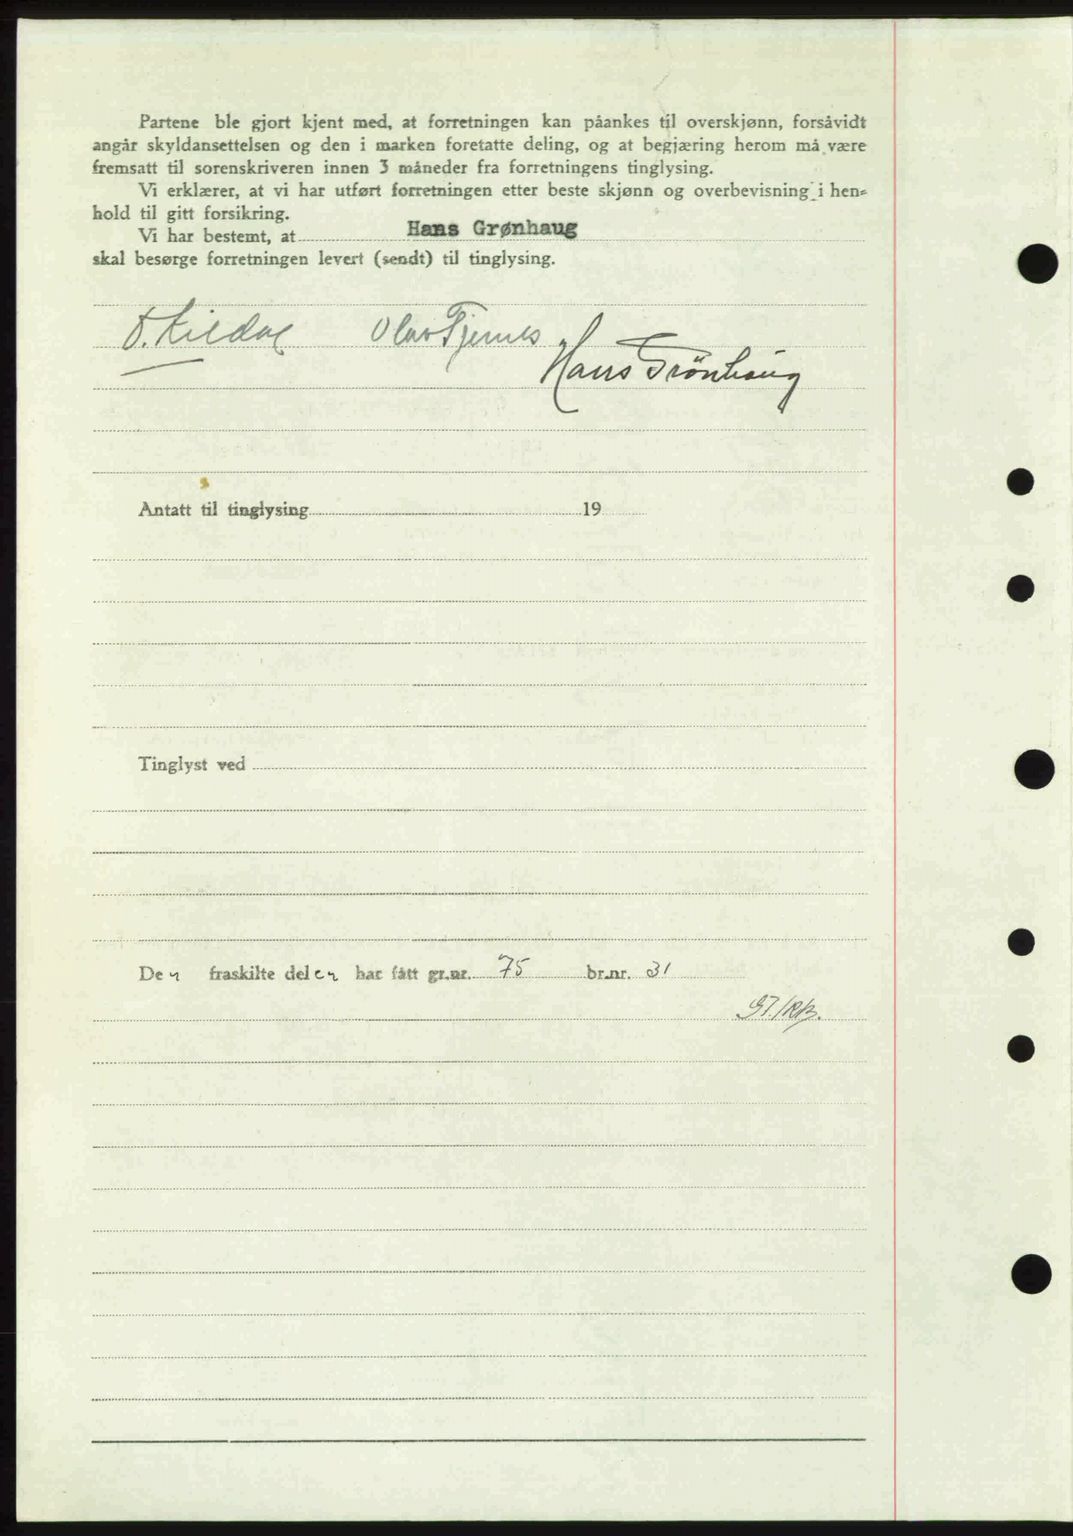 Partene ble gjort kjent med, at forretningen kan påankes til overskjønn, forsåvidt
angår skyldansettelsen og den i marken foretatte deling, og at begjæring herom må være
fremsatt til sorenskriveren innen 3 måneder fra forretningens tinglysing.
Vi erklærer, at vi har utført forretningen etter beste skjønn og overbevisning i hen-
hold til gitt forsikring.
Vi har bestemt, at Hans Grønhaug
skal besørge forretningen levert (sendt) til tinglysing.
Olav Fjernes
Hans Grönhaug
Antatt til tinglysing 19
Tinglyst ved
Den fraskilte delen har fått gr.nr. 75 br.nr. 31